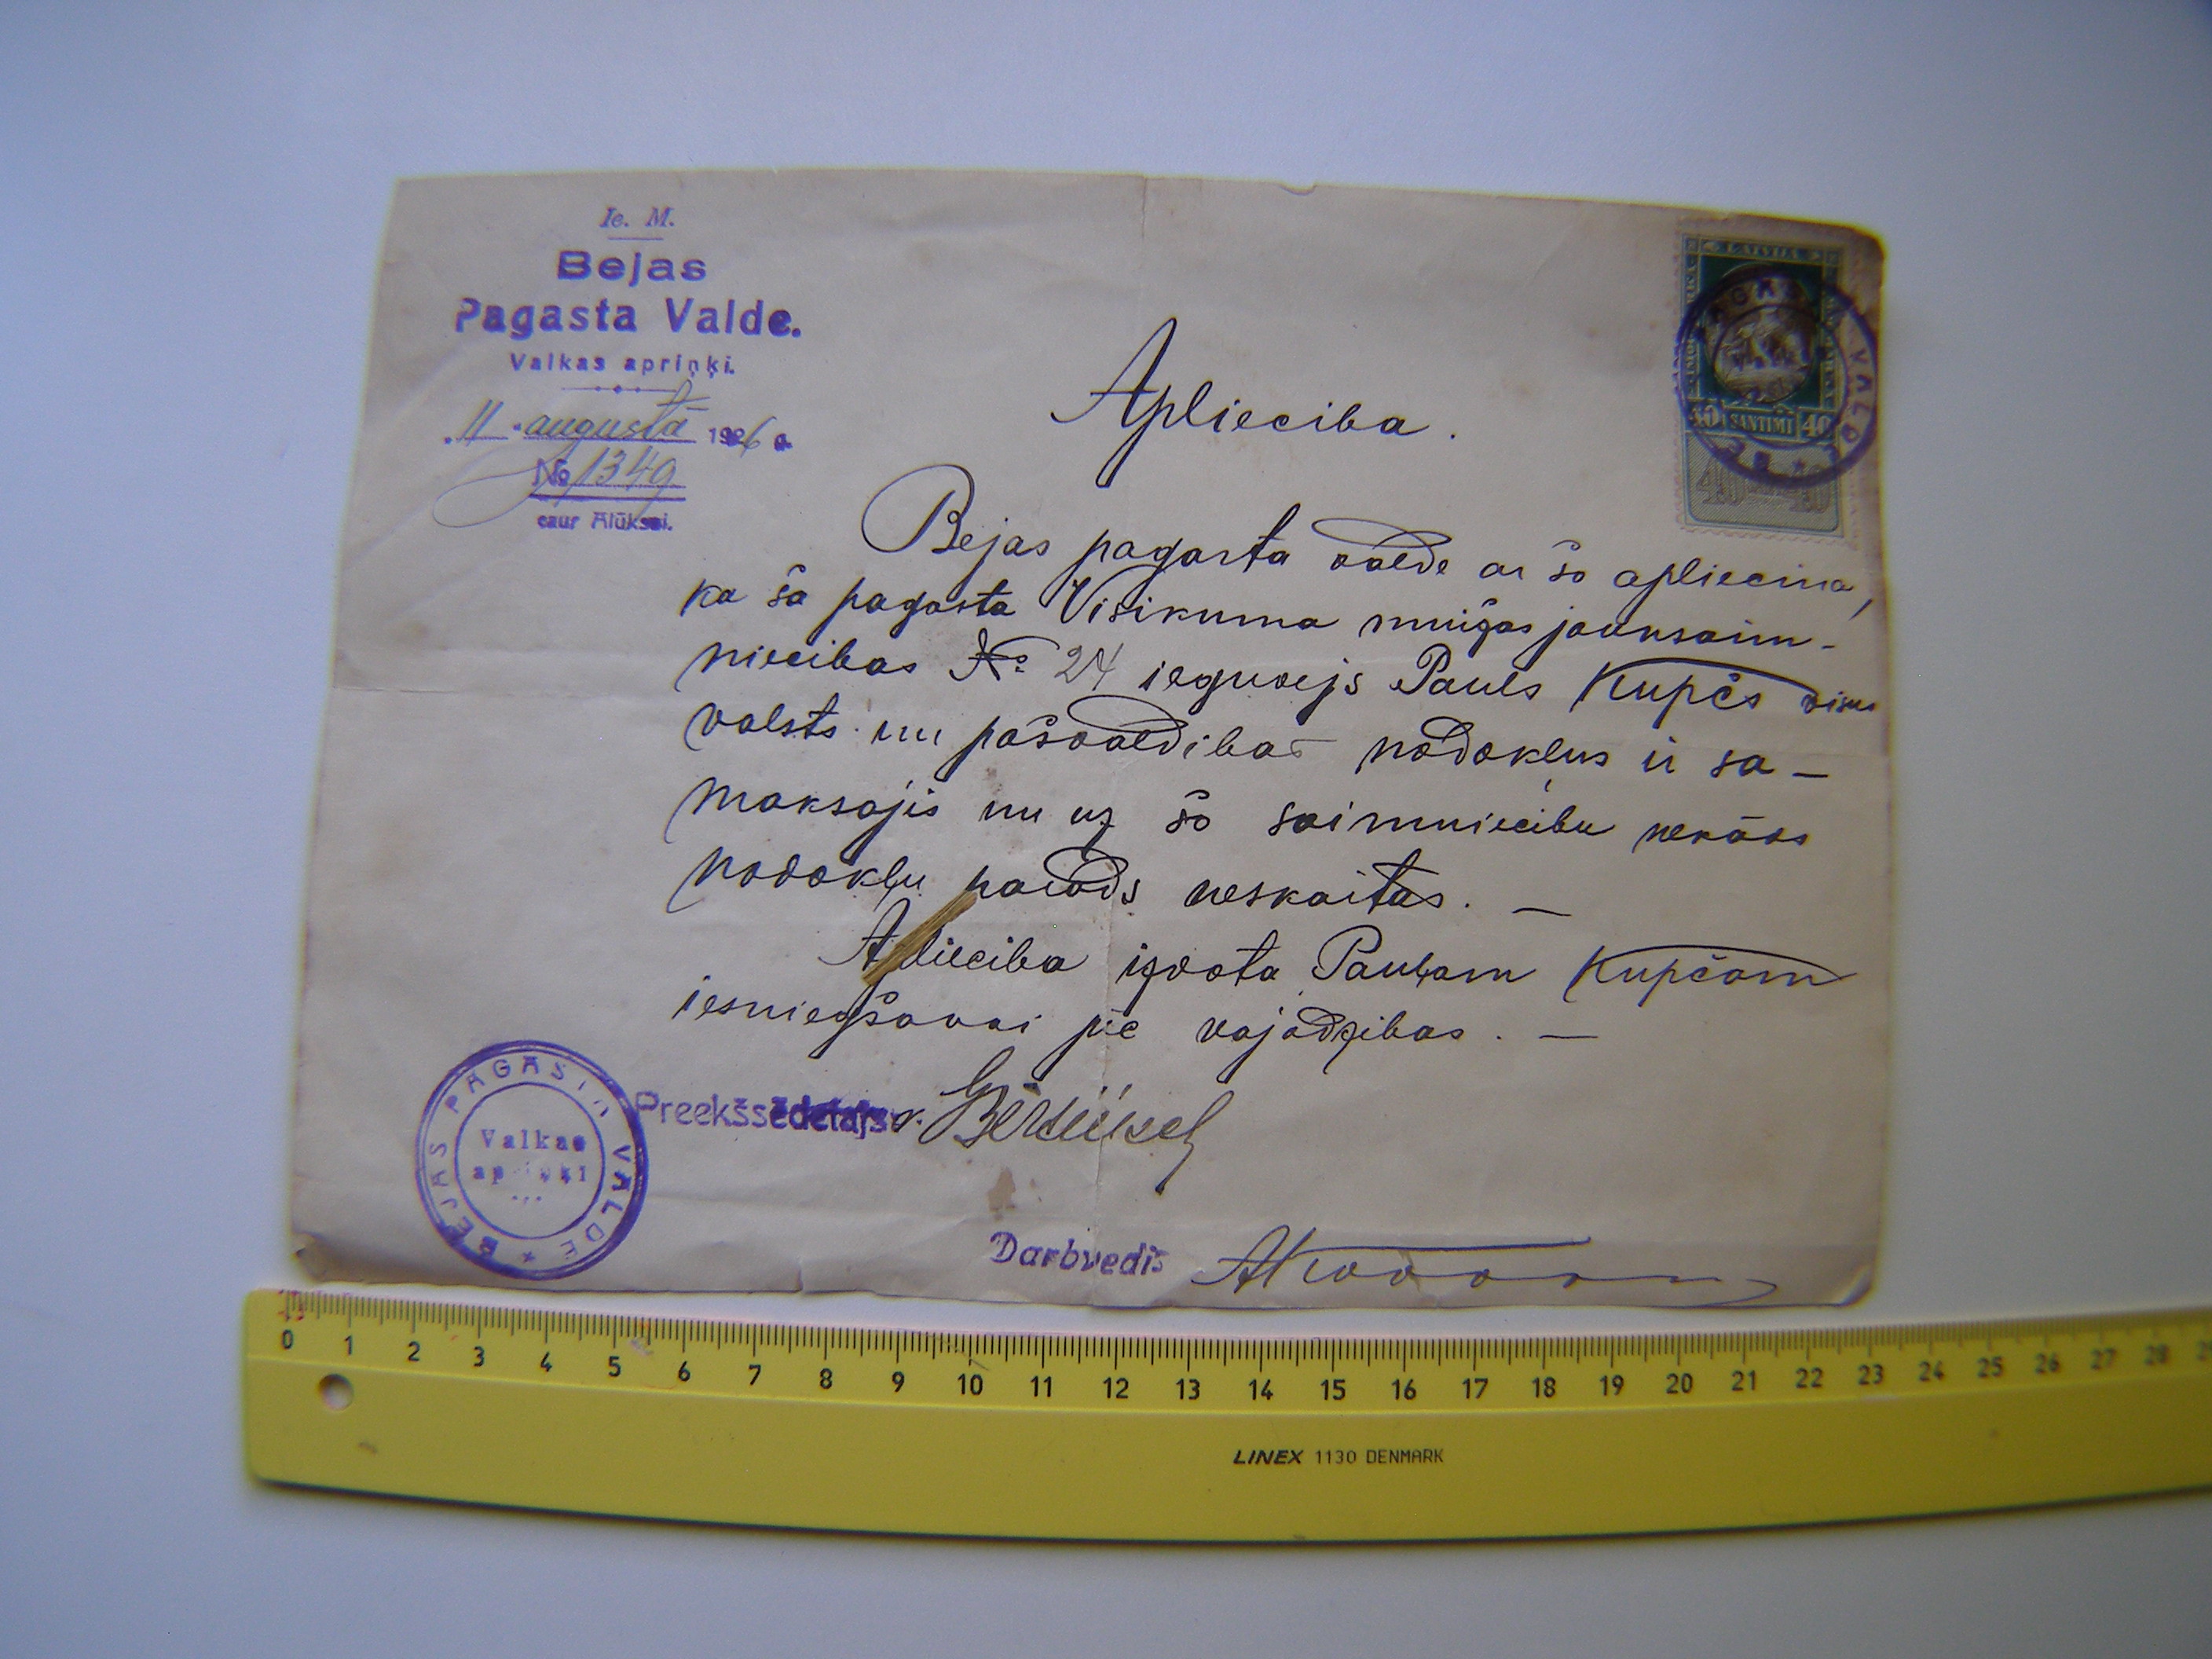 Ie. M.
Bejas
Pagasta Valde.
Valkas apriņķi.
„11" augustā 1926 g.
№ 1349
caur Alūksni.
LATVIJA
40 SANTIMI 40
40 40
Apliecība.
Bejas pagasta valde ar šo apliecina,
ka ša pagasta Visikuma muižas jaunsaim-
niecibas № 24 ieguvejs Pauls Kupčs visus
valsts un pašvaldibas nodokļus ir sa-
maksajis un uz šo saimniecibu nekāds
nodokļu parads neskaitas. —
Apliecība izdota Paulam Kupčam
iesniegšanai pēc vajadzibas. —
BEJAS PAGASTA VALDE *
Valkas
apriņķi
Preekšsēdetajs v.
Darbvedis
0 1 2 3 4 5 6 7 8 9 10 11 12 13 14 15 16 17 18 19 20 21 22 23 24 25 26 27 28 29
LINEX 1130 DENMARK